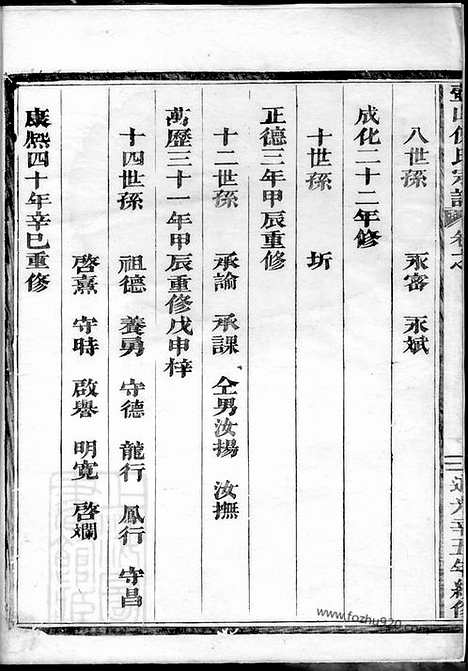 八世孫 永密 永斌
成化二十二年修
十世孫 圻
正德三年甲辰重修
十二世孫 承諭 承課 仝男汝揚 汝撫
萬歷三十一年甲辰重修戊申梓
十四世孫 祖德 養勇 守德 龍行 鳳行 守昌
啓熹 守時 啟譽 明寬 啓斕
康熙四十年辛巳重修
www.fozhu920.com